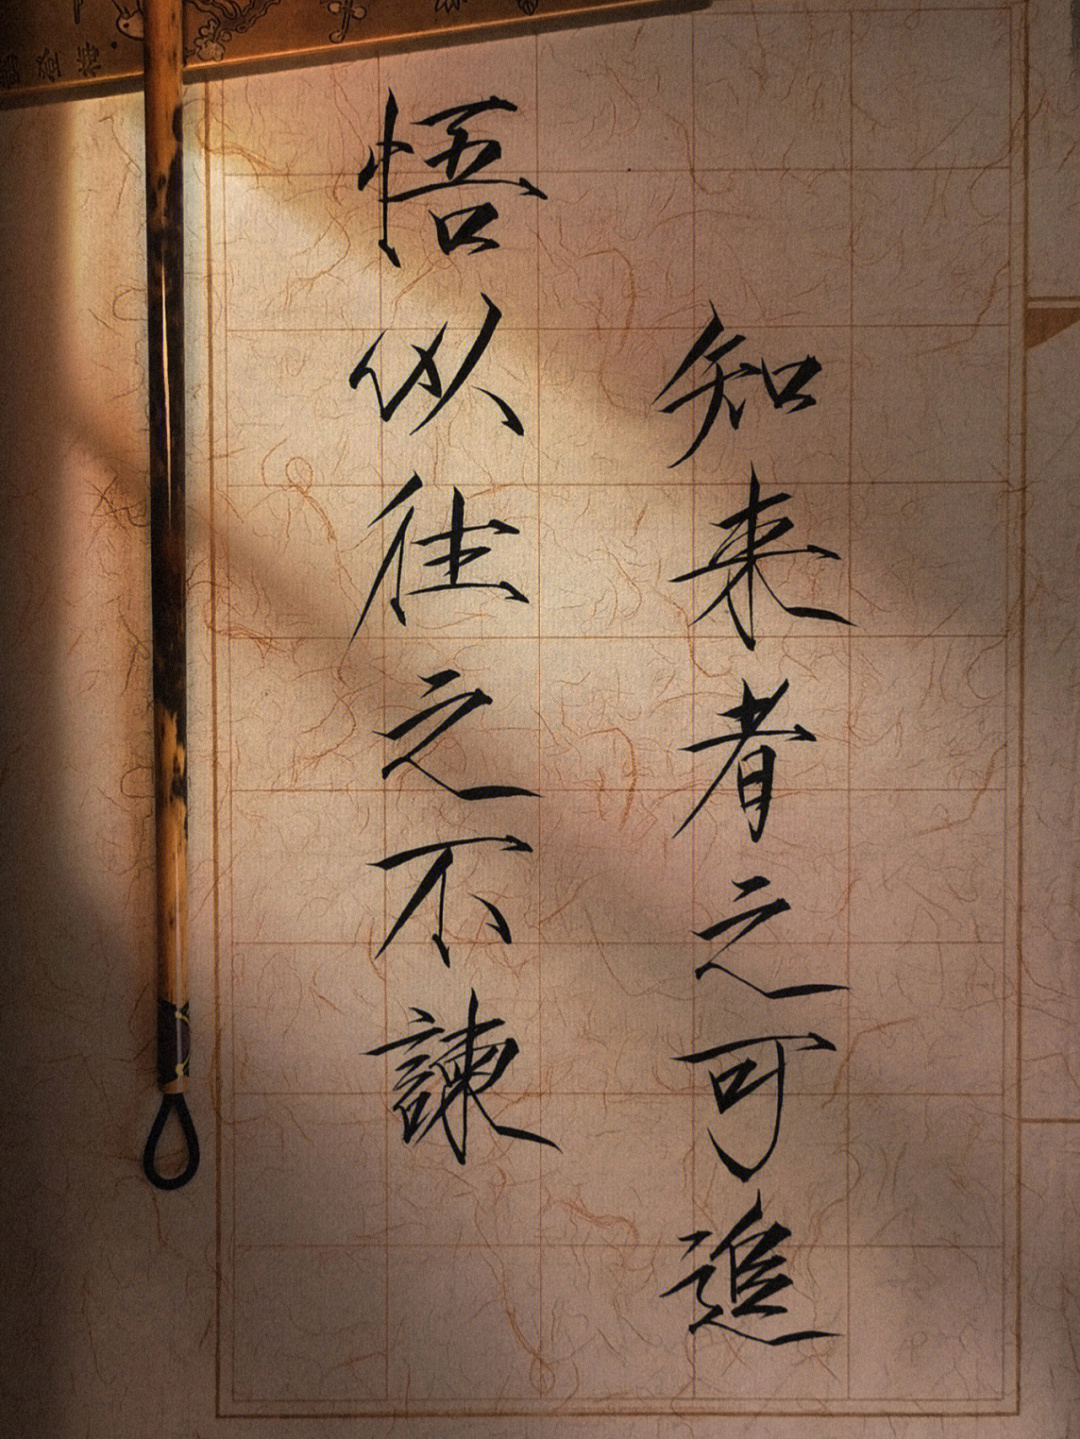 悟以往之不諫
知来者之可追